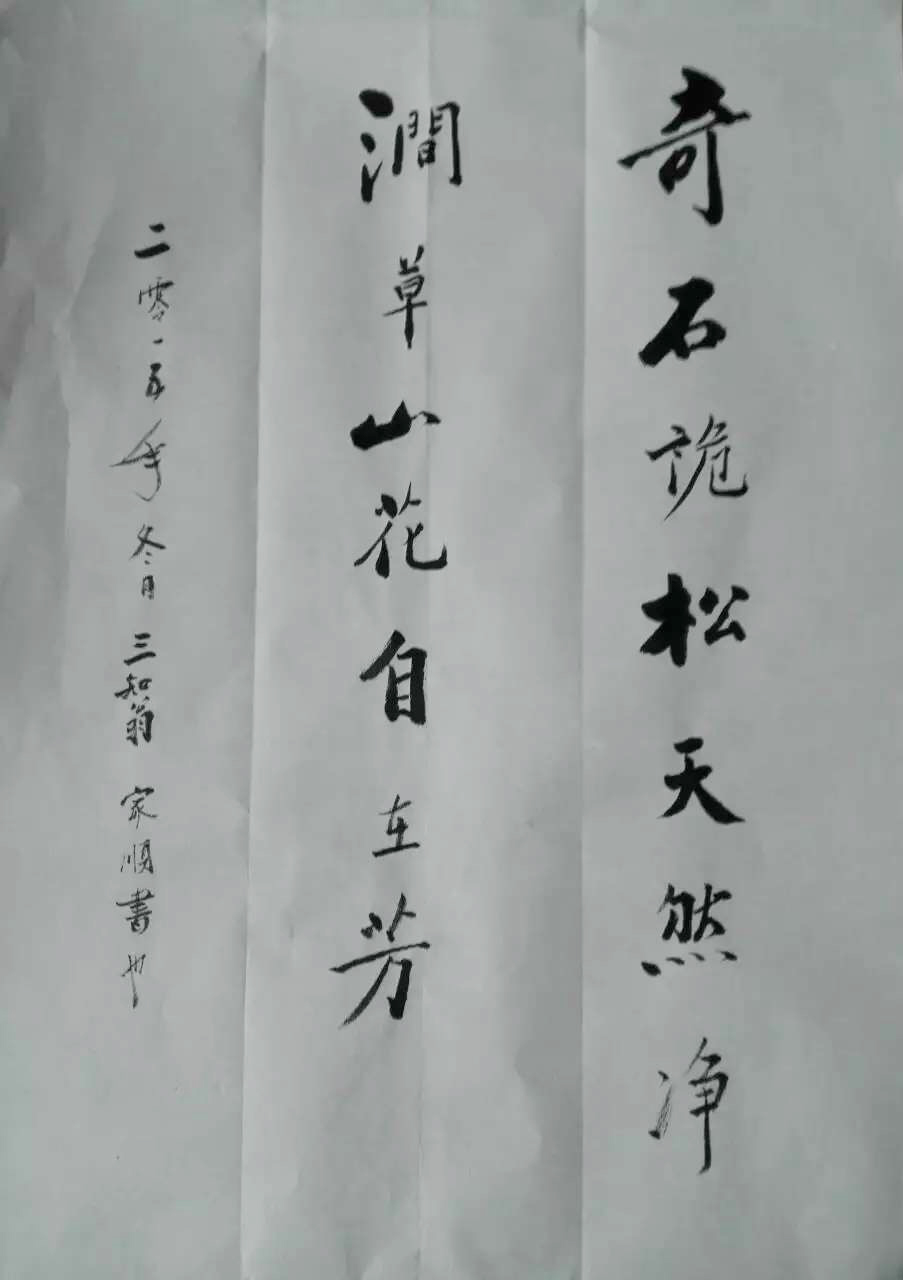 奇石诡松天然净
澗草山花自在芳
二零一五年冬月三知翁家順書也